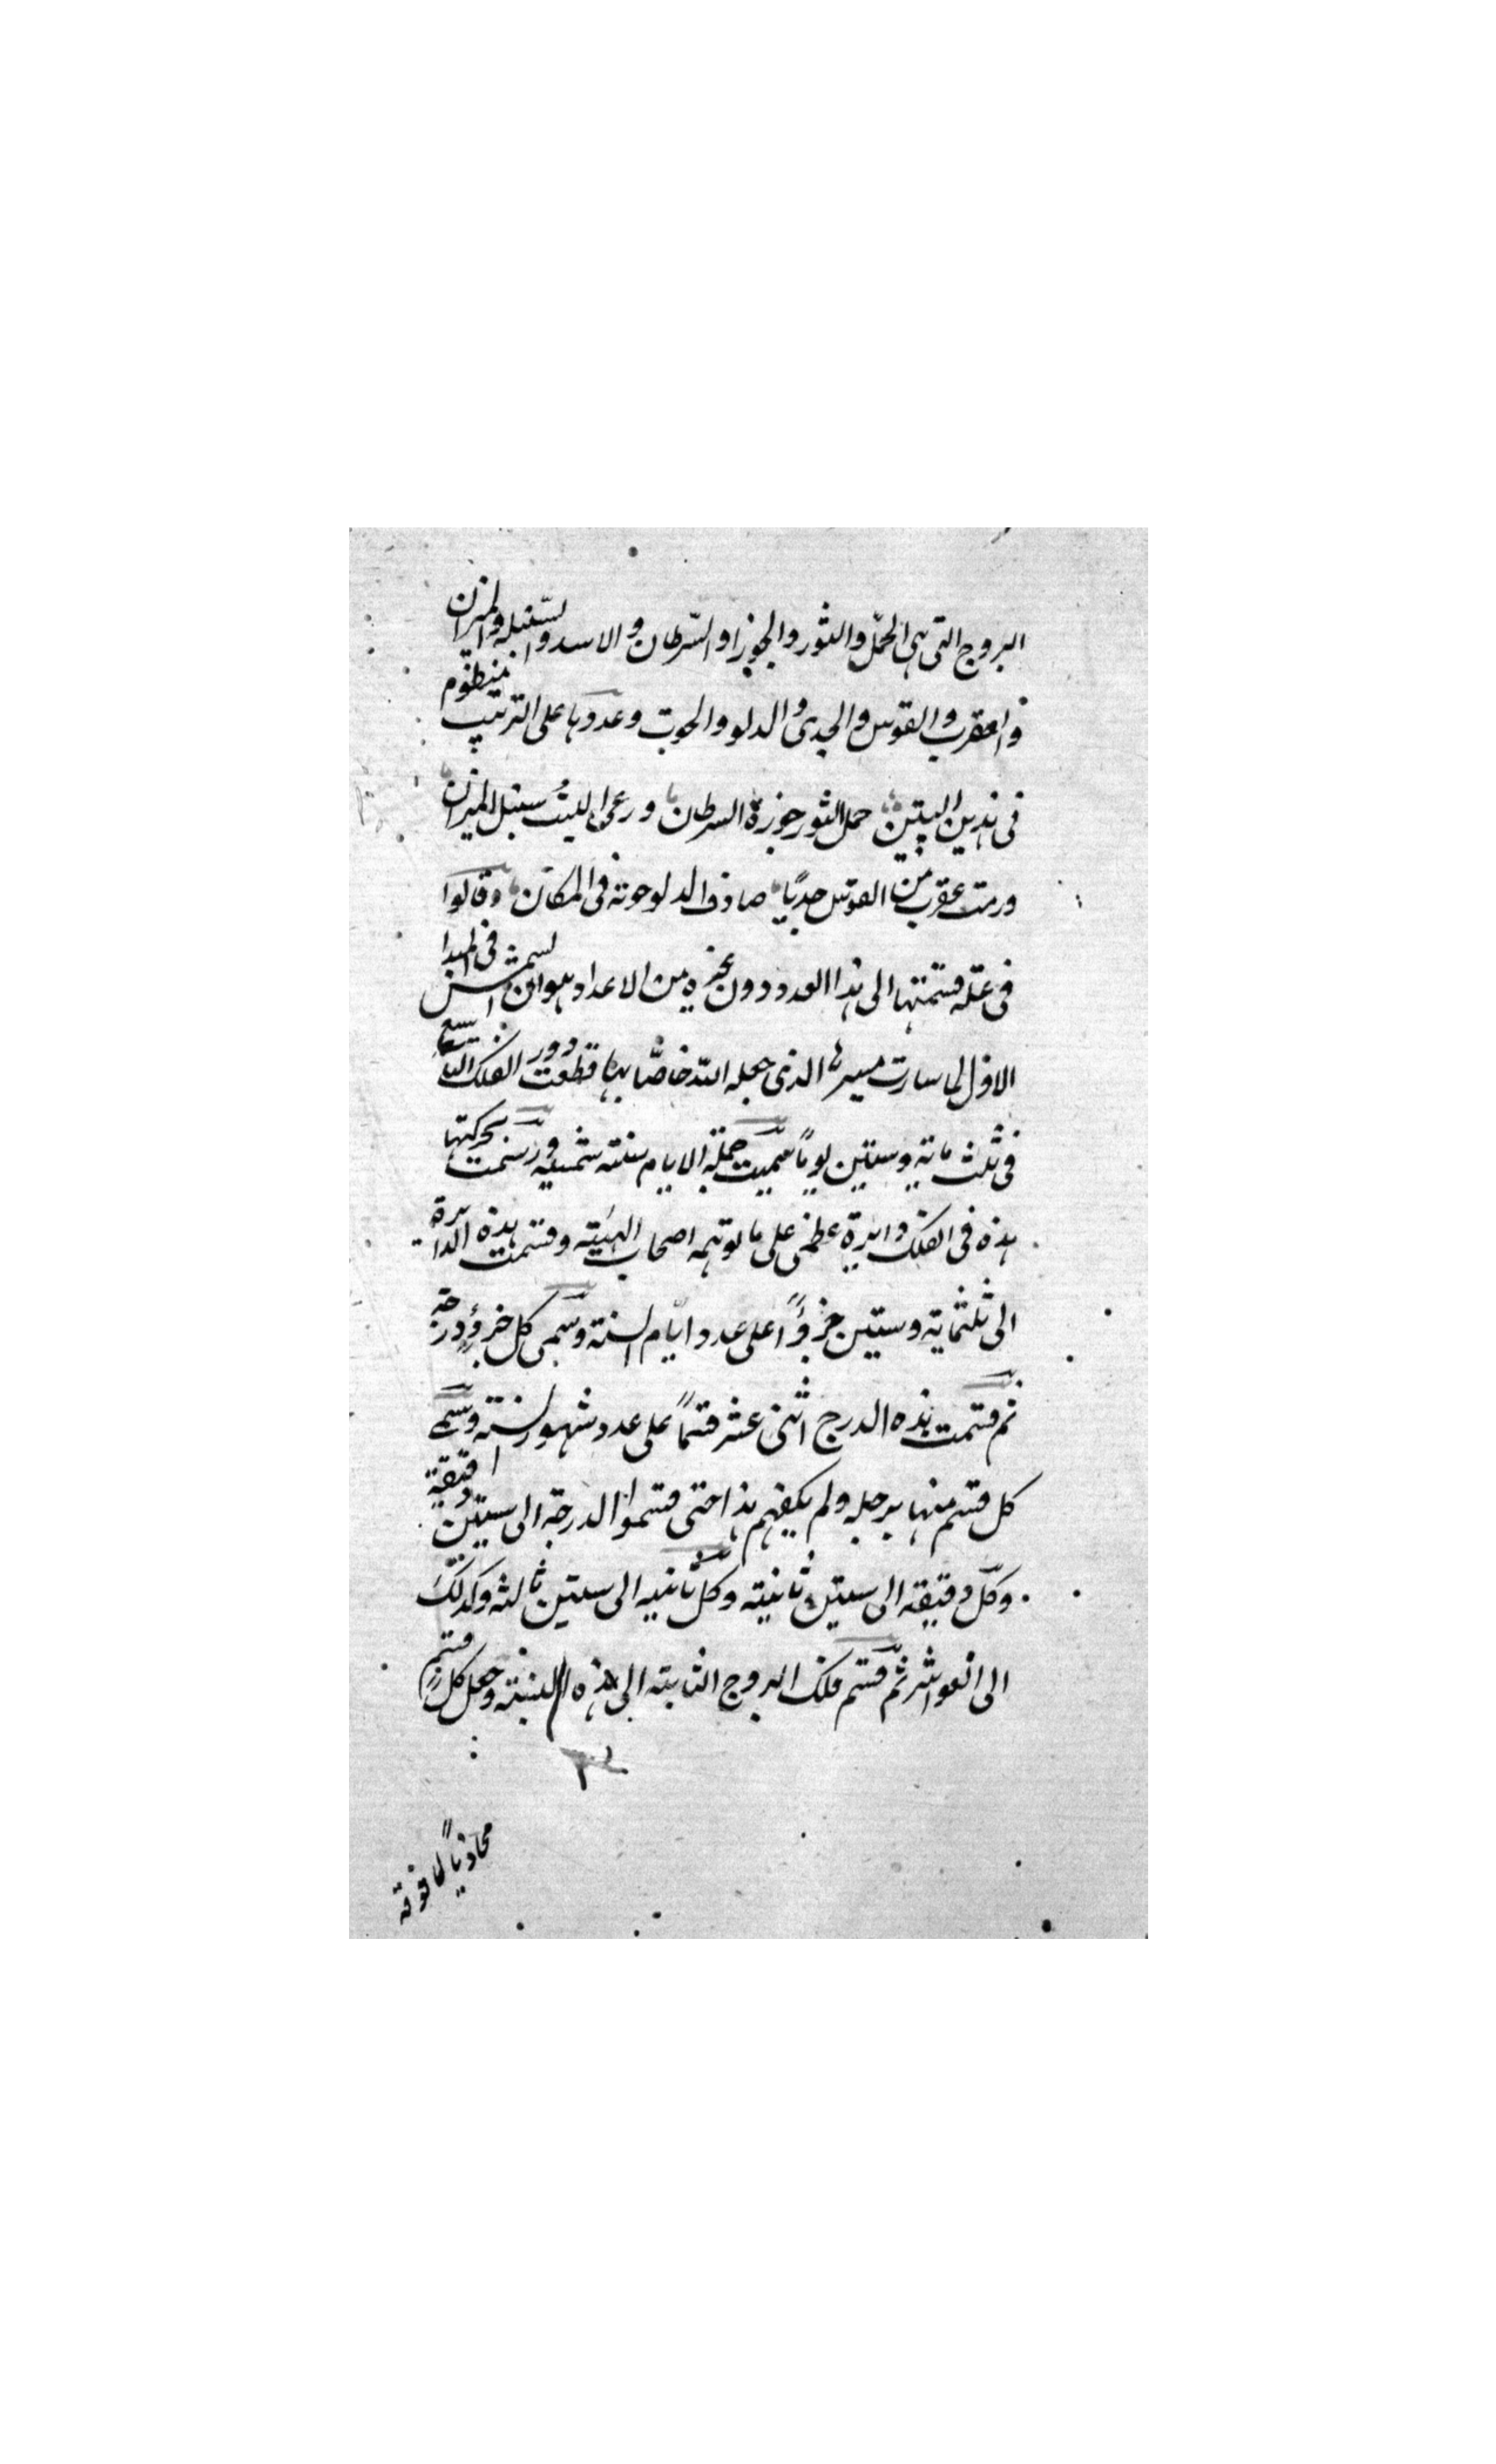 البروج التى هى الحمل والثور والجوزا والسّرطان والاسد والسّنبله والميزان
والعقرب والقوس والجدى والدلو والحوت وعدوها على الترتيب منظوم
فى هذين البيتين حمل الثور جوزة السرطان ورعى الليث سنبل الميزان
ورمت عقرب من القوس جديًا صادف الدلو حوته فى المكان وقالوا
فى علّة قسمتها الى هذا العدد دون غيره من الاعداد هو ان الشمس فى المبدا
الاول لما سارت مسيرها الذى جعله الله خاصًّا بها قطعت دور الفلك التاسع
فى ثلث ماية وستين يومًا سمّيت جملة الايام سنته شمسيه ورسمت بحركتها
هذه فى الفلك دايرة عظمى على ما توهمه اصحاب الهيئته وقسمت هذه الدايرة
الى ثلثماية وستين جزؤًا على عدد ايّام السنة وسمى كل جزؤٍ درجة
ثم قسمت هذه الدرج اثنى عشر قسمًا على عدد شهور السنته وسمّى
كل قسم منها برجا ولم يكفهم هذا حتى قسموا الدرجة الى ستين دقيقة
وكلّ دقيقه الى ستين ثانيته وكل ثانيه الى ستين ثالثه وكذلك
الى العواشر ثمّ قسم فلك البروج الثابته الى هذه النسبته وجعل كل قسمٍ
محاذيًا لما فوقه